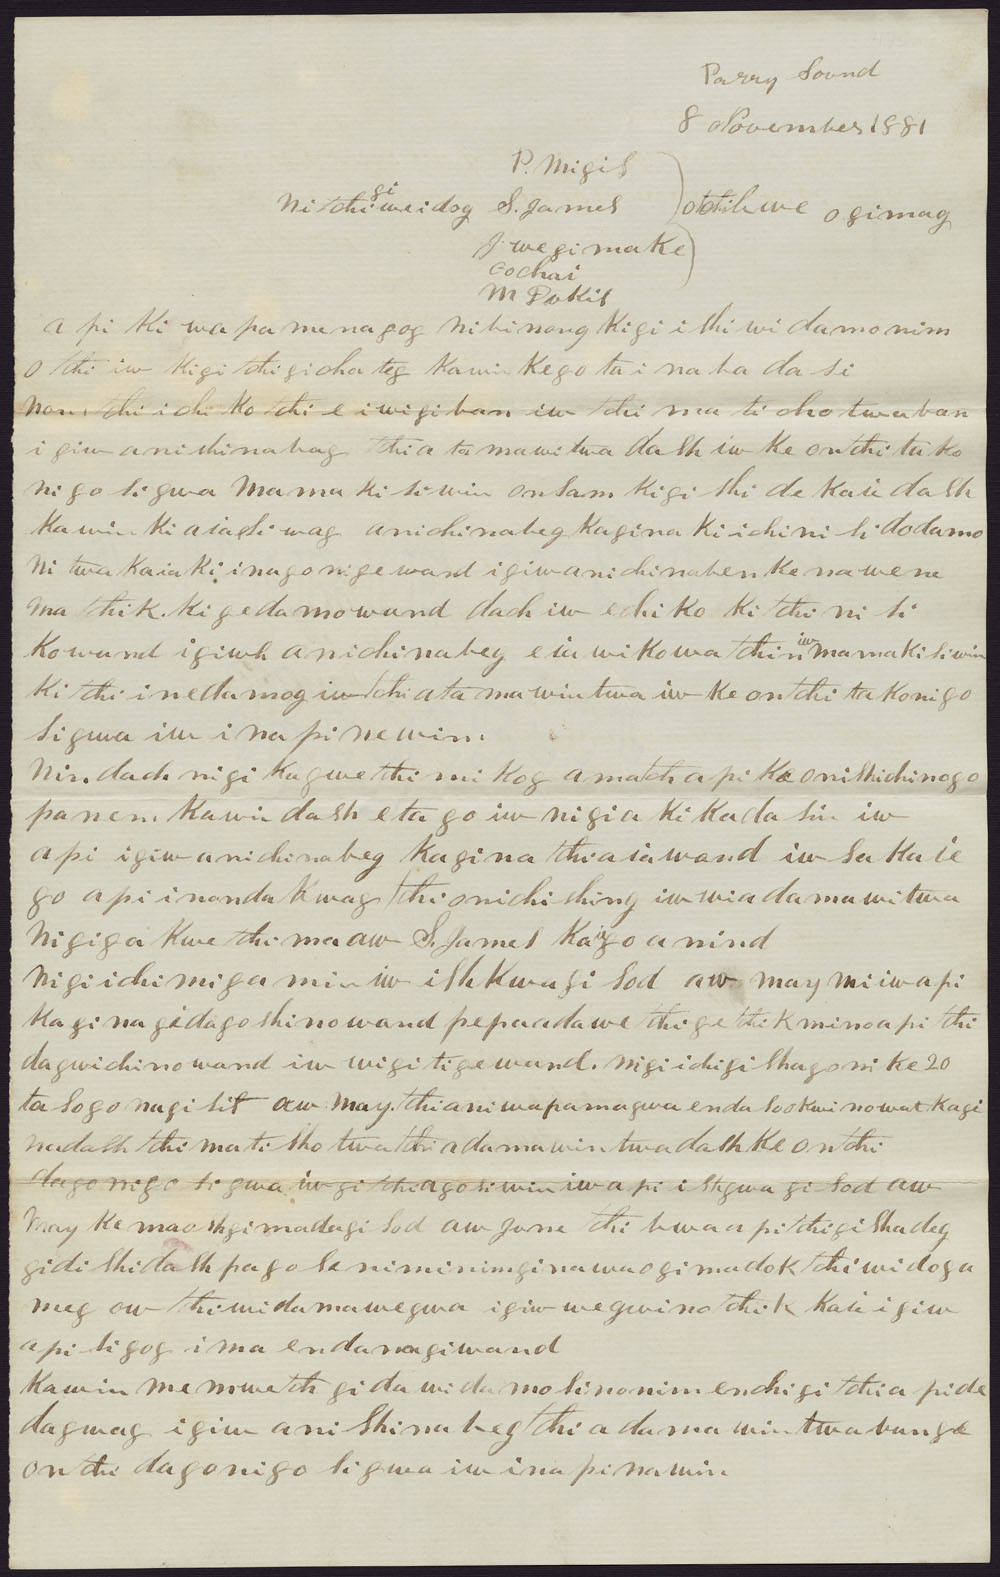 Parry Sound
8 November 1881
P. Migis
Nitchigiweidog S. James otchibwe ogimag
J. wegimake
Cochai
M Pukis
a pi ki wa pa menagog nibinong kigi i shi wi damonim
o tchi iw kigi tchi gicha teg kawin kego ta i na ba da si
non tchi ichi ko tchi e iwigiban iw tchi ma ti cho twaban
i giw anichinabag tchi a ta mawitwa dash iw ke ontchi ta ko
ni go si gwa mamakisiwin onsam kigi shi de kaie dash
kawin ki aiassiwag anichinabeg kagina ki ichi ni si dodamo
ni twa kaia ki inagonigewand igiw anichinaben ke nawene
ma tchik. ki gedamowand dach iw echi ko ki tchi ni si
kowand igiwh anichinabeg e ia wikowa tchin iw mamakisiwin
ki tchi inedamog iw tchi a ta mawintwa iw ke ontchi ta konigo
sigwa iw i na pi ne winn
Nin dach nigi kagwe tchi mi kog amatch a pi ke onishichinogo
panenn kawin dash eta go iw nigi a ki ka da sin iw
a pi igiw anichinabeg kagina tchi aiawand iw sa kaie
go a pi inanda kwag tchi onichiching iw wia damawitwa
Nigiga kwe tchima aw S. James kaigo anind
Nigi ichi miga min iw ishkwagi sod aw may mi iw a pi
kaginagedagoshinowand pepaadawe tchi ge tchik mino a pi tchi
dagwichinowand iw wigi tigewand. nigi ichi gi shagoni ke 20
ta so go na gi sit aw may. tchi ani wapamagwa enda sookwinowat kagi
nadash tchi mati sho twa tchi adamawintwa dash ke ontchi
dagonigo si gwa iw gi tchi ago siwin iw a pi ishgwa gi sod aw
may ke maoshgimadagi sod aw June tchi bwa a pi tchi gi shadeg
gidi shi dash pa go se niminim ginawa ogimadok tchi widoga
meg ow tchi widamawegwa igiw wegwino tchik kaie igiw
a pi si gog ima endanagiwand
kawin memwetch gi da widamosinonim enchigi tchi a pide
dagwag igiw anishinabeg tchi adamawintwabange
ontchi dagonigo sigwa iw ina pi nawin